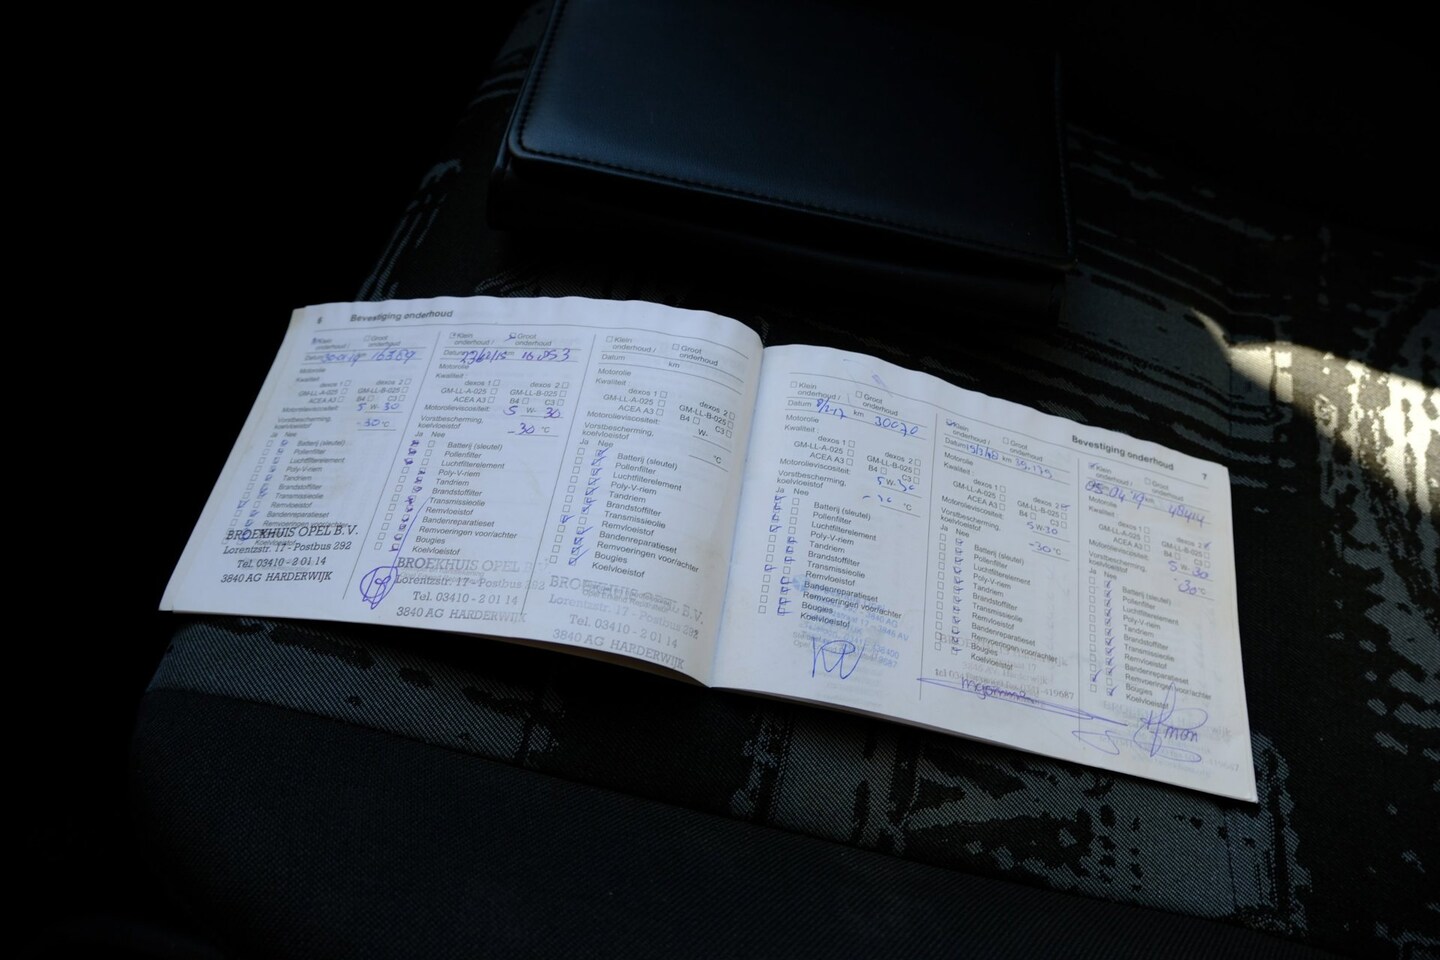 6 Bevestiging onderhoud
Klein onderhoud / Groot onderhoud
Datum km 16369
Motorolie
Kwaliteit :
dexos 1 dexos 2
GM-LL-A-025 GM-LL-B-025
ACEA A3 B4 C3
Motorolieviscositeit: 5 W- 30
Vorstbescherming, koelvloeistof -30 °C
Ja Nee
Batterij (sleutel)
Pollenfilter
Luchtfilterelement
Poly-V-riem
Tandriem
Brandstoffilter
Transmissieolie
Remvloeistof
Bandenreparatieset
Remvoeringen voor/achter
BROEKHUIS OPEL B.V.
Lorentzstr. 17 - Postbus 292
Tel. 03410 - 2 01 14
3840 AG HARDERWIJK
Klein onderhoud / Groot onderhoud
Datum km
Motorolie
Kwaliteit :
dexos 1 dexos 2
GM-LL-A-025 GM-LL-B-025
ACEA A3 B4 C3
Motorolieviscositeit: 5 W- 30
Vorstbescherming, koelvloeistof -30 °C
Ja Nee
Batterij (sleutel)
Pollenfilter
Luchtfilterelement
Poly-V-riem
Tandriem
Brandstoffilter
Transmissieolie
Remvloeistof
Bandenreparatieset
Remvoeringen voor/achter
Bougies
Koelvloeistof
BROEKHUIS OPEL
Lorentzstr. 17 - Postbus 292
Tel. 03410 - 2 01 14
3840 AG HARDERWIJK
Klein onderhoud / Groot onderhoud
Datum km
Motorolie
Kwaliteit :
dexos 1 dexos 2
GM-LL-A-025 GM-LL-B-025
ACEA A3 B4 C3
Motorolieviscositeit: W-
Vorstbescherming, koelvloeistof °C
Ja Nee
Batterij (sleutel)
Pollenfilter
Luchtfilterelement
Poly-V-riem
Tandriem
Brandstoffilter
Transmissieolie
Remvloeistof
Bandenreparatieset
Remvoeringen voor/achter
Bougies
Koelvloeistof
BROEKHUIS OPEL B.V.
Lorentzstr. 17 - Postbus 292
Tel. 03410 - 2 01 14
3840 AG HARDERWIJK
Bevestiging onderhoud 7
Klein onderhoud / Groot onderhoud
Datum km 30070
Motorolie
Kwaliteit :
dexos 1 dexos 2
GM-LL-A-025 GM-LL-B-025
ACEA A3 B4 C3
Motorolieviscositeit: 5 W- 30
Vorstbescherming, koelvloeistof °C
Ja Nee
Batterij (sleutel)
Pollenfilter
Luchtfilterelement
Poly-V-riem
Tandriem
Brandstoffilter
Transmissieolie
Remvloeistof
Bandenreparatieset
Remvoeringen voor/achter
Bougies
Koelvloeistof
Klein onderhoud / Groot onderhoud
Datum km
Motorolie
Kwaliteit :
dexos 1 dexos 2
GM-LL-A-025 GM-LL-B-025
ACEA A3 B4 C3
Motorolieviscositeit: 5 W-30
Vorstbescherming, koelvloeistof -30 °C
Ja Nee
Batterij (sleutel)
Pollenfilter
Luchtfilterelement
Poly-V-riem
Tandriem
Brandstoffilter
Transmissieolie
Remvloeistof
Bandenreparatieset
Remvoeringen voor/achter
Bougies
Koelvloeistof
Klein onderhoud / Groot onderhoud
Datum 05-04-19 km
Motorolie
Kwaliteit :
dexos 1 dexos 2
GM-LL-A-025 GM-LL-B-025
ACEA A3 B4 C3
Motorolieviscositeit: 5 W- 30
Vorstbescherming, koelvloeistof -30 °C
Ja Nee
Batterij (sleutel)
Pollenfilter
Luchtfilterelement
Poly-V-riem
Tandriem
Brandstoffilter
Transmissieolie
Remvloeistof
Bandenreparatieset
Remvoeringen voor/achter
Bougies
Koelvloeistof